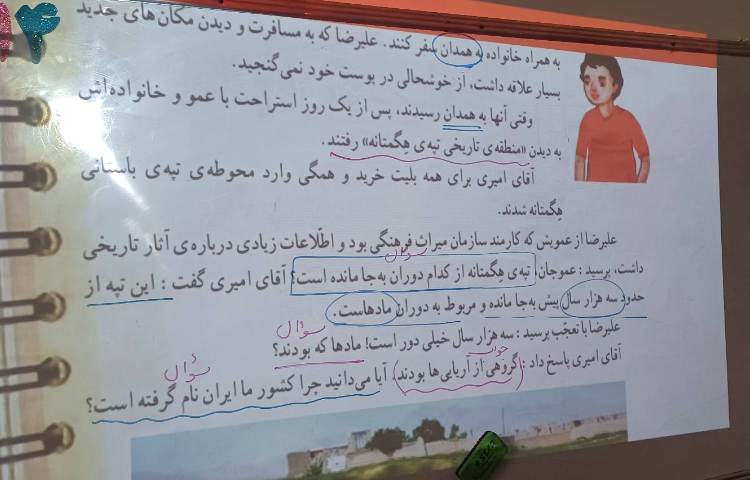 به همراه خانواده به همدان سفر کنند. علیرضا که به مسافرت و دیدن مکان‌های جدید
بسیار علاقه داشت، از خوشحالی در پوست خود نمی‌گنجید.
وقتی آنها به همدان رسیدند، پس از یک روز استراحت با عمو و خانواده‌اش
به دیدن «منطقه‌ی تاریخی تپه‌ی هگمتانه» رفتند.
آقای امیری برای همه بلیت خرید و همگی وارد محوطه‌ی تپه‌ی باستانی
هگمتانه شدند.
علیرضا از عمویش که کارمند سازمان میراث فرهنگی بود و اطّلاعات زیادی درباره‌ی آثار تاریخی
سؤال
داشت، پرسید : عموجان! تپه‌ی هگمتانه از کدام دوران به‌جا مانده است؟ آقای امیری گفت : این تپه از
حدود سه هزار سال پیش به‌جا مانده و مربوط به دوران مادهاست.
سؤال
علیرضا با تعجّب پرسید : سه هزار سال خیلی دور است! مادها که بودند؟
جواب
سؤال
آقای امیری پاسخ داد : گروهی از آریایی‌ها بودند. آیا می‌دانید چرا کشور ما ایران نام گرفته است؟